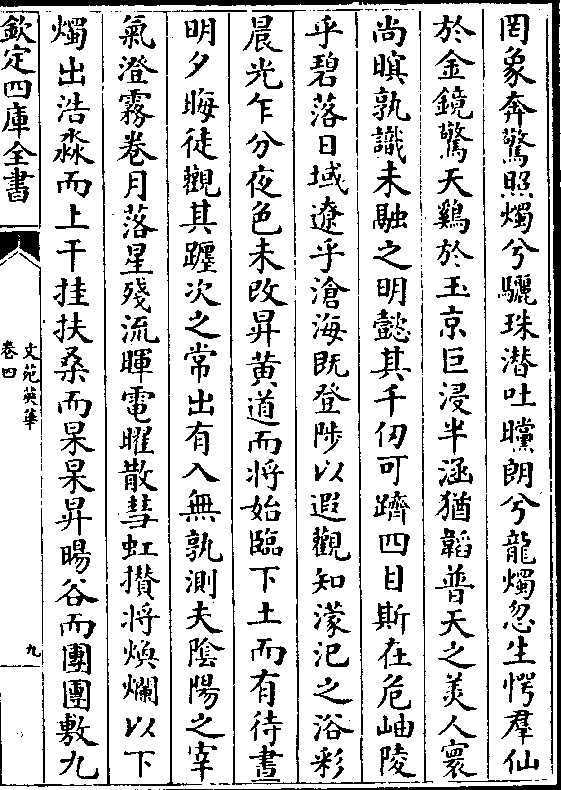 罔象奔驚照燭兮驪珠潜吐曭朗兮龍燭忽生愕羣仙
於金鏡驚天鷄於玉京巨浸半涵猶韜普天之羙人寰
尚暝孰識未融之明懿其千仞可躋四目斯在危岫陵
乎碧落日域遼乎滄海既登陟以遐觀知濛汜之浴彩
晨光乍分夜色未改昇黄道而將始臨下土而有待晝
明夕晦徒觀其躔次之常出有入無孰測夫陰陽之宰
氣澄霧卷月落星殘流暉電曜散彗虹攅將煥爛以下
燭出浩淼而上干挂扶桑而杲杲昇暘谷而團團敷九
欽定四庫全書
文苑英華
卷四
九